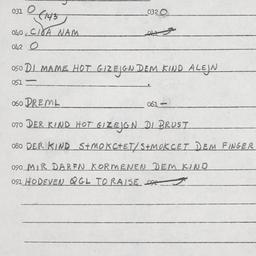 031 O 032 O
(14/5)
040 CIGA NAM 041
042 O
050 DI MAME HOT GIZEJGN DEM KIND ALEJN
051 —
060 DREML 061 —
070 DER KIND HOT GIZEJGN DI BRUST
080 DER KIND S+MOKC+ET/S+MOKCET DEM FINGER
090 MIR DARFN KORMENEN DEM KIND
091 HODEVEN QGL TO RAISE 092